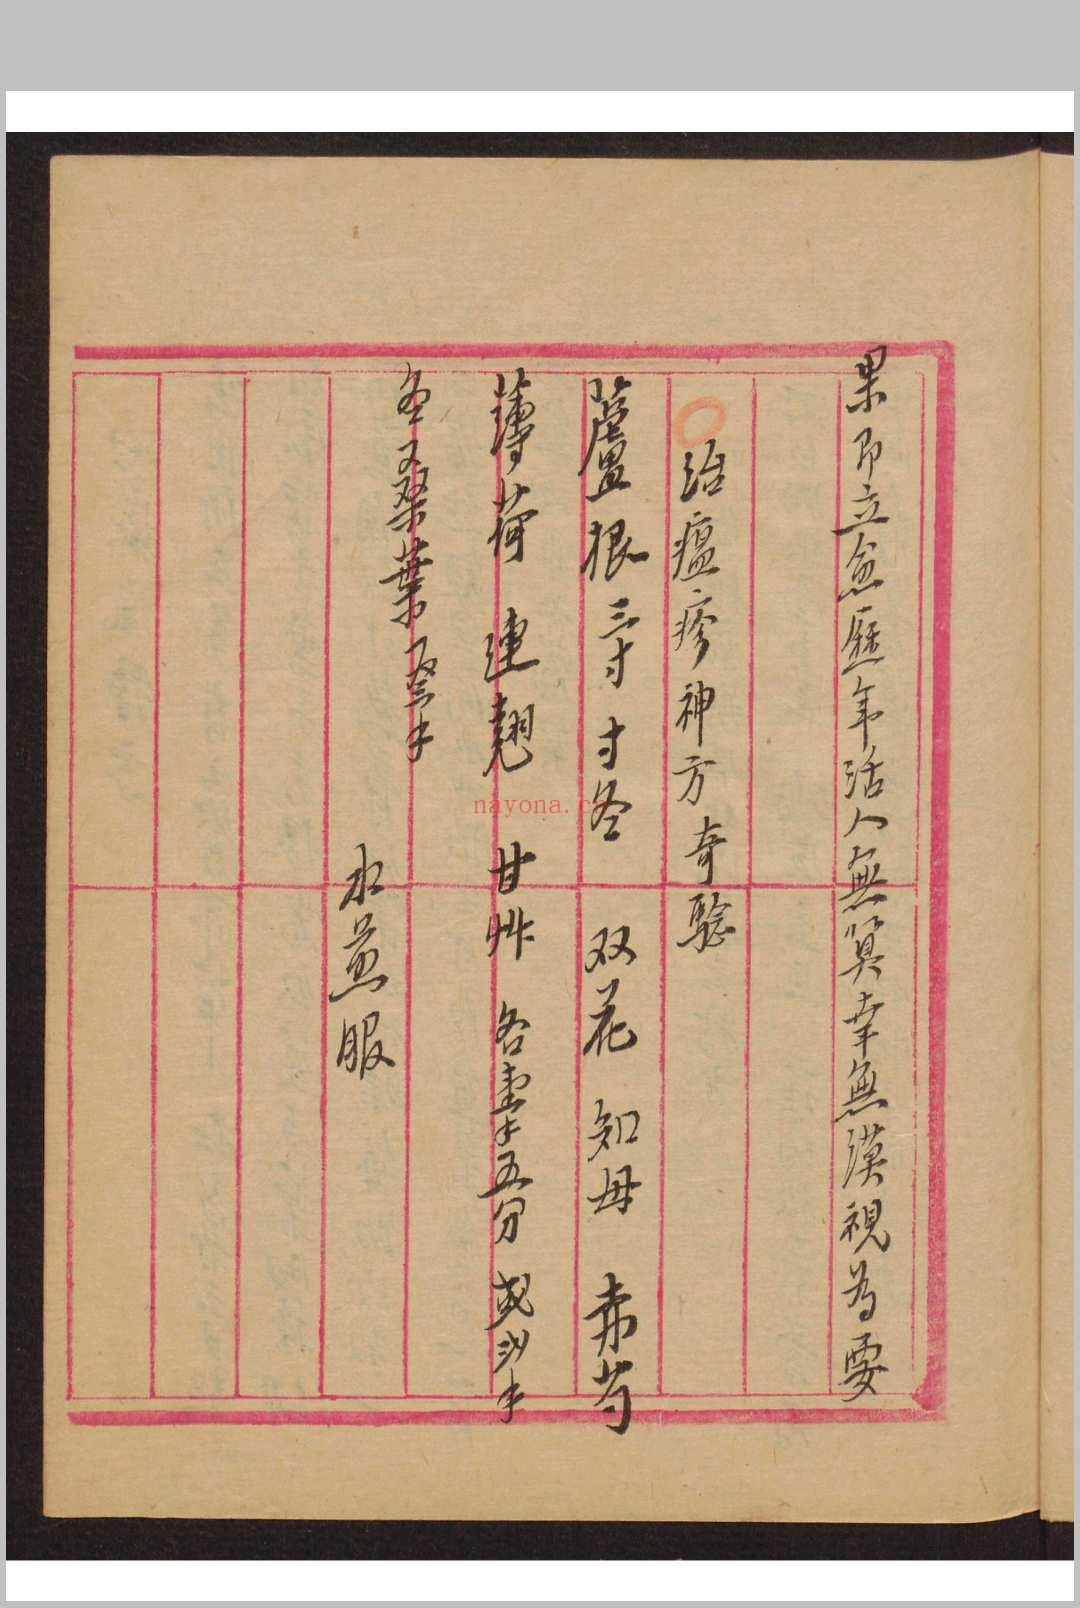 果即立愈歷年活人無算幸無漠視為要
治瘟疹神方奇騐
蘆根三寸 寸冬 双花 知母 赤芍
薄荷 連翹 甘艸 各壹錢五分 或
冬桑葉
水煎服
nayona.c